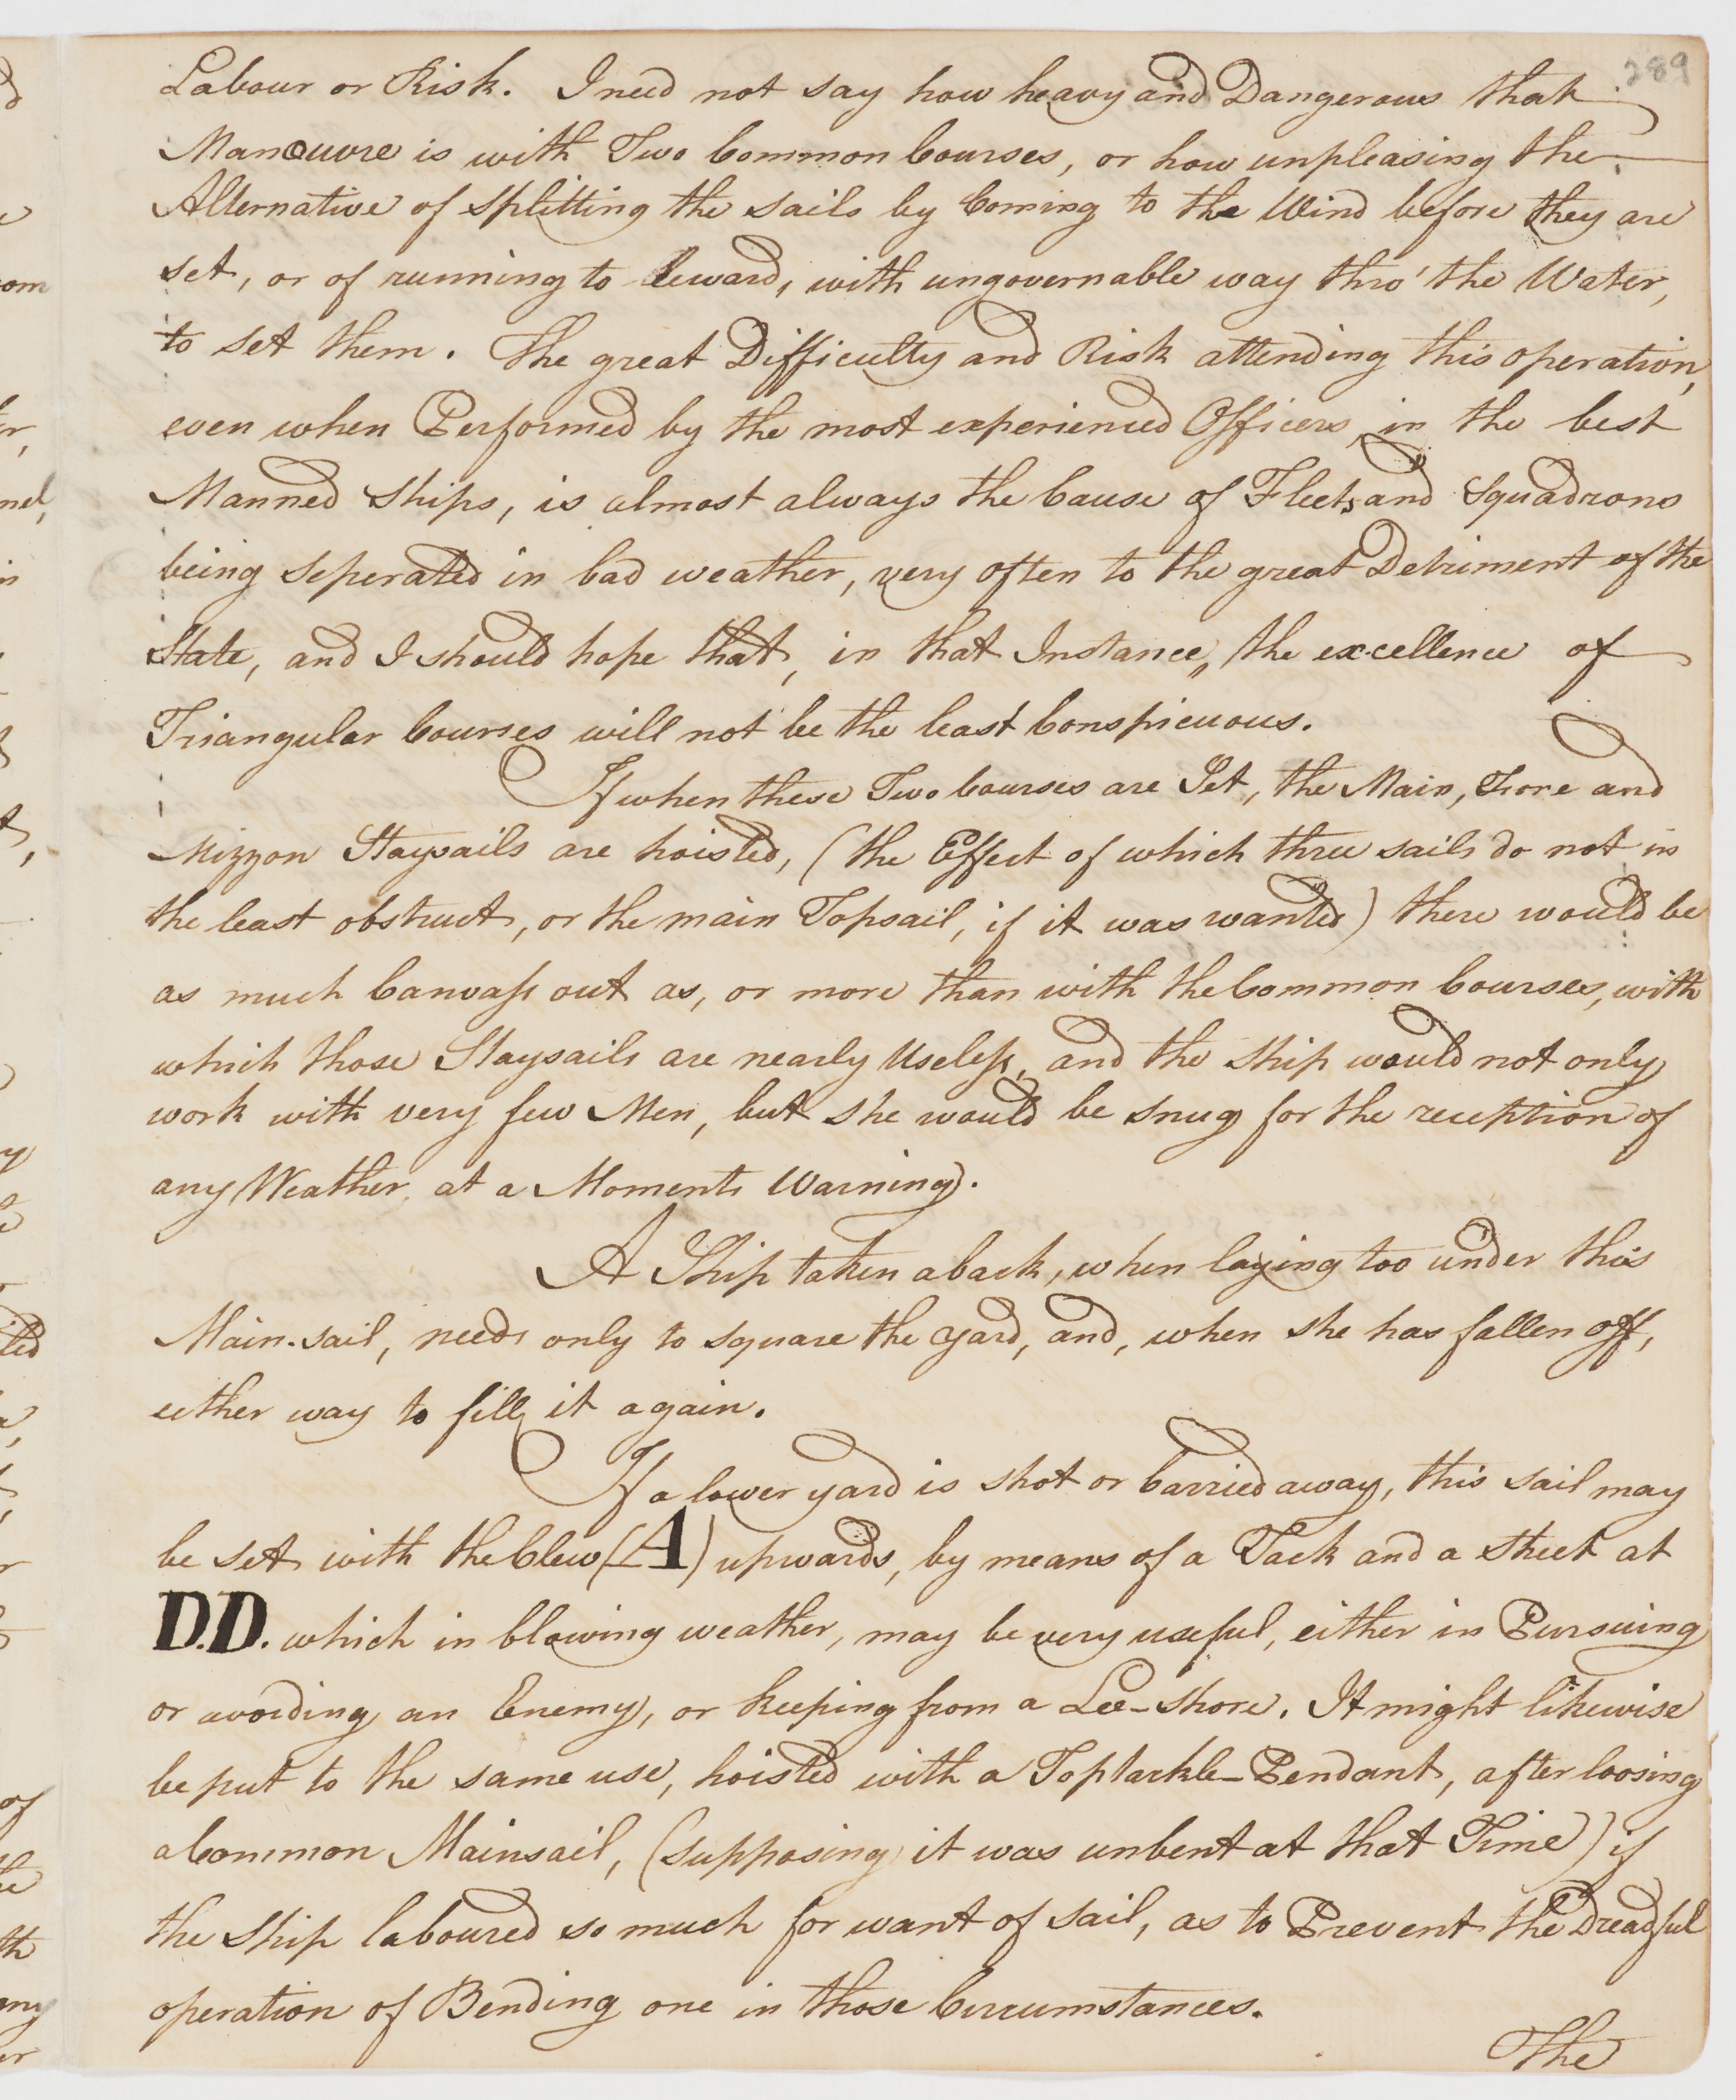 289
Labour or Risk. I need not say how heavy and Dangerous that
Manœuvre is with Two Common Courses, or how unpleasing the
Alternative of splitting the sails by Coming to the Wind before they are
set, or of running to leward, with ungovernable way thro' the Water,
to set them. The great Difficulty and Risk attending this operation,
even when Performed by the most experienced Officers, in the best
Manned Ships, is almost always the Cause of Fleets and Squadrons
being seperated in bad weather, very often to the great Detriment of the
State, and I should hope that, in that Instance, the excellence of
Triangular Courses will not be the least Conspicuous.
If when these Two Courses are Set, the Main, Fore and
Mizzon Staysails are hoisted, (the Effect of which three sails do not in
the least obstruct, or the main Topsail, if it was wanted) there would be
as much Canvass out as, or more than with the Common Courses, with
which those Staysails are nearly Useless, and the Ship would not only
work with very few Men, but she would be snug for the reception of
any Weather, at a Moments Warning.
A Ship taken aback, when laying too under this
Main-sail, needs only to square the yard, and, when she has fallen off,
either way to fill it again.
If a lower yard is shot or Carried away, this sail may
be set with the Clew (A) upwards, by means of a Tack and a sheet at
D.D. which in blowing weather, may be very useful, either in Pursuing
or avoiding an Enemy, or keeping from a Lee-shore. It might likewise
be put to the same use, hoisted with a Toptackle-Pendant, after loosing
a Common Mainsail, (supposing it was unbent at that Time) if
the Ship laboured so much for want of sail, as to Prevent the Dreadful
operation of Bending one in those Circumstances.
The